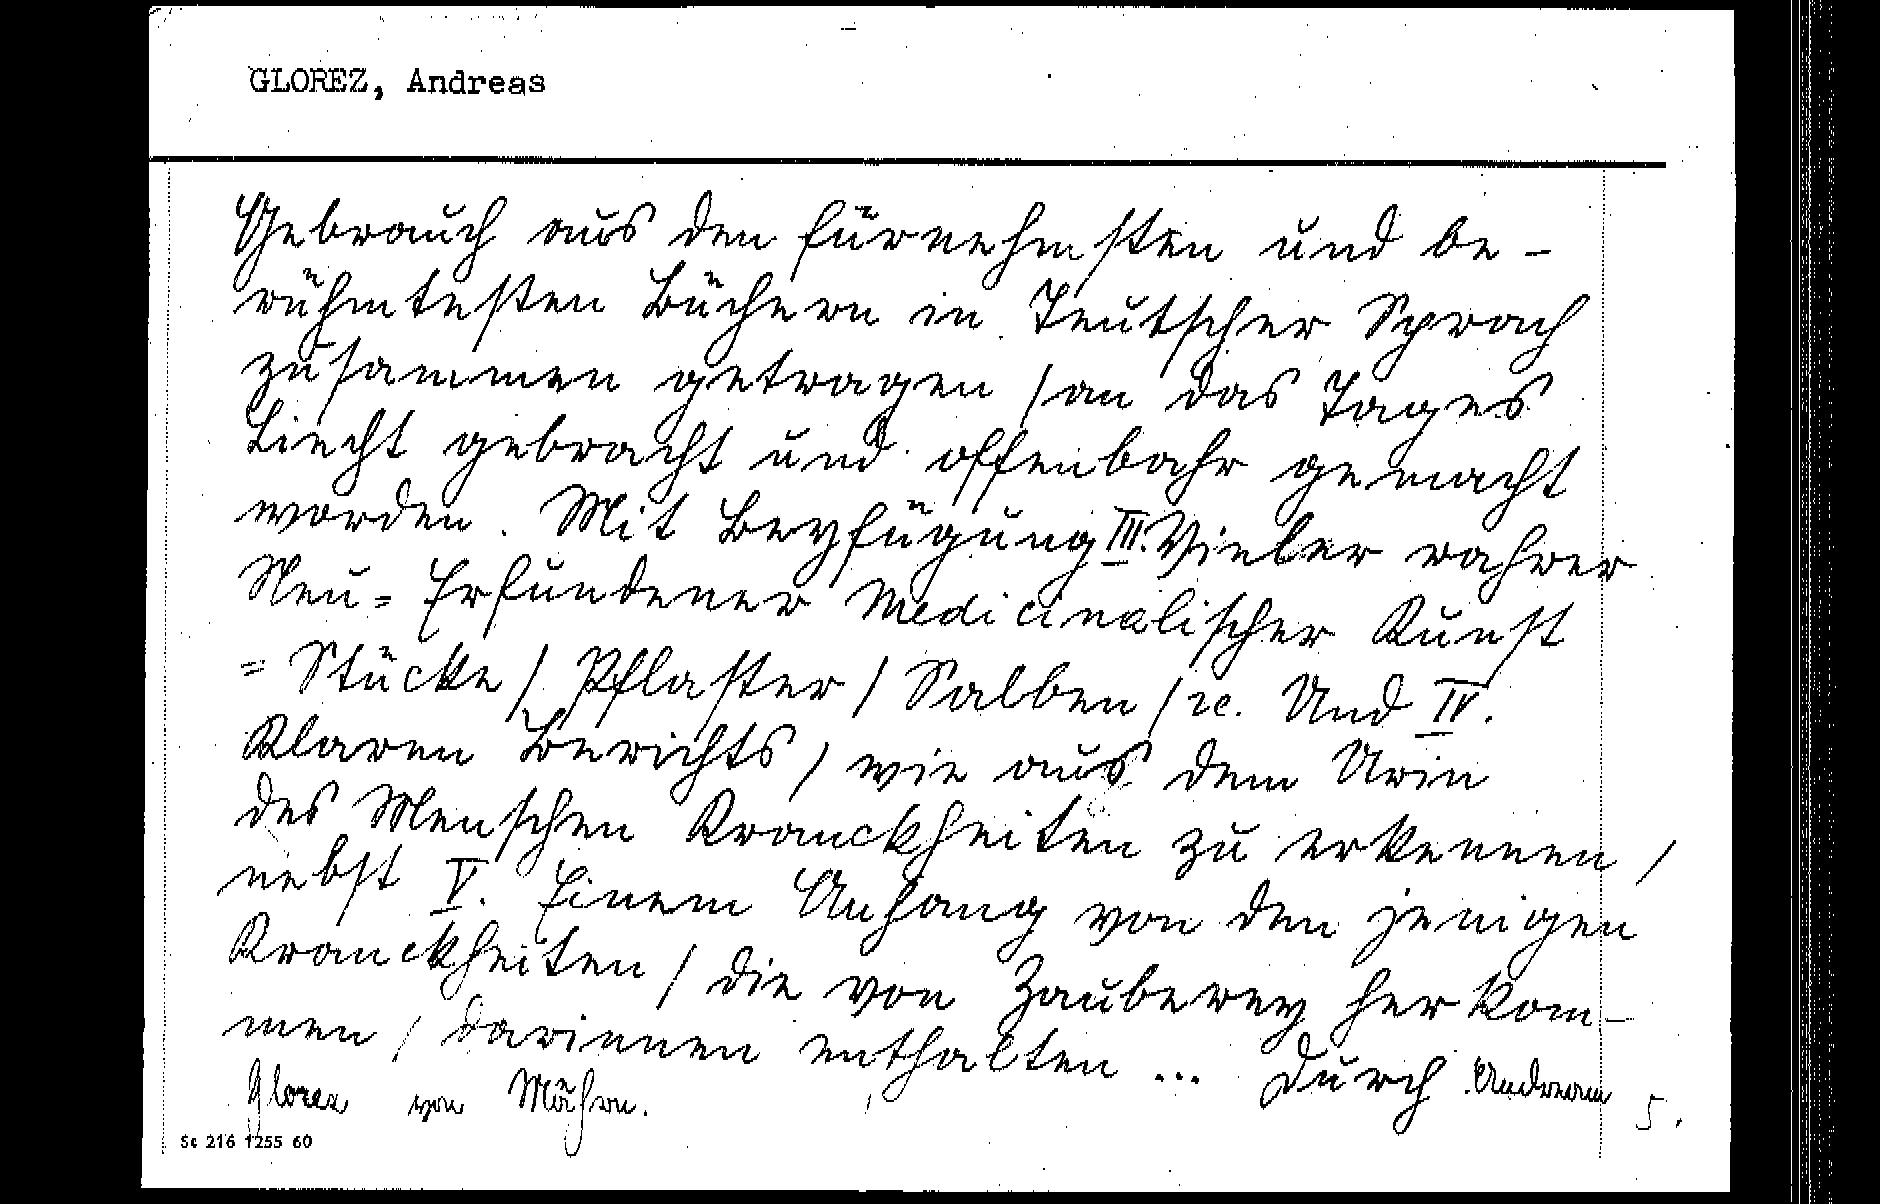 GLOREZ, Andreas
Gebrauch aus den fürnehmsten und be-
rühmtesten Büchern in Teutscher Sprach
zusammen getragen / an das Tages
Liecht gebracht und offenbahr gemacht
worden. Mit Beyfügung III. Vieler rahrer
Neu= Erfundener Medicinalischer Kunst
=Stücke / Pflaster / Salben / ꝛc. Und IV.
Klaren Berichts / wie aus dem Urin
des Menschen Kranckheiten zu erkennen /
nebst V. Einem Anhang von den jenigen
Kranckheiten / die von Zauberey her kom-
men / darinnen enthalten ... Durch Andream
Glorez von Mähren.
5.
Sc 216 1255 60